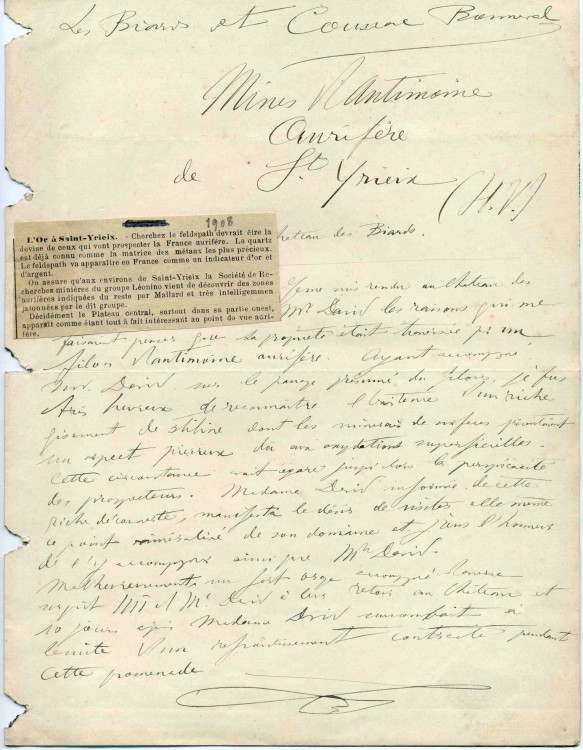 Les Biards et Coussac Bonneval
Mines d'Antimoine
Aurifère
de St Yrieix
(H.V.)
1908
L'Or à Saint-Yrieix. - Cherchez le feldspath devrait être la
devise de ceux qui vont prospecter la France aurifère. Le quartz
est déjà connu comme la matrice des métaux les plus précieux.
Le feldspath va apparaître en France comme un indicateur d'or et
d'argent.
On assure qu'aux environs de Saint-Yrieix la Société de Re-
cherches minières du groupe Léonino vient de découvrir des zones
aurifères indiquées du reste par Mallard et très intelligemmen
jalonnées par le dit groupe.
Décidément le Plateau central, surtout dans sa partie ouest,
apparaît comme étant tout à fait intéressant au point de vue auri-
fère.
des Biards.
me suis rendre au Château des
Mr David les raisons qui me
faisaient penser que la propriété était traversée par un
filon d'antimoine aurifère. Ayant accompagné
Mr. David sur le passage présumé du filon, je fus
très heureux de reconnaître l'existence d'un riche
gisement de stibine dont les minerais de surface présentaient
un aspect pierreux dû aux oxydations superficielles.
Cette circonstance avait égaré jusqu'alors la perspicacité
des prospecteurs. Madame David informée de cette
riche découverte, manifesta le désir de visiter elle même
ce point minéralisé de son domaine et j'eus l'honneur
de l'y accompagner ainsi que Mr David.
Malheureusement un fort orage accompagné
surprit Mr et Me David à leur retour au Château et
10 jours après Madame David succombait à
la suite d'un refroidissement contracté pendant
cette promenade